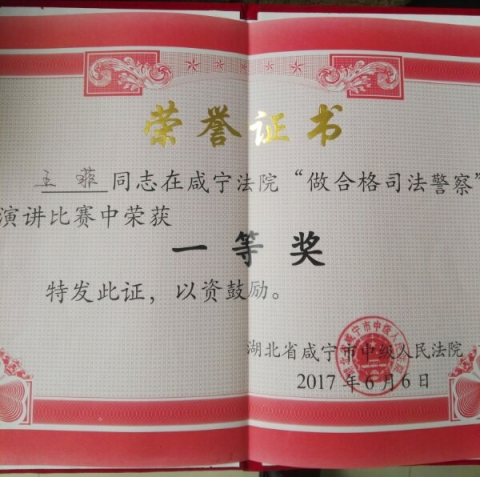 荣誉证书
王菲同志在咸宁法院“做合格司法警察”
演讲比赛中荣获
一等奖
特发此证，以资鼓励。
湖北省咸宁市中级人民法院
2017年6月6日
湖北省咸宁市中级人民法院